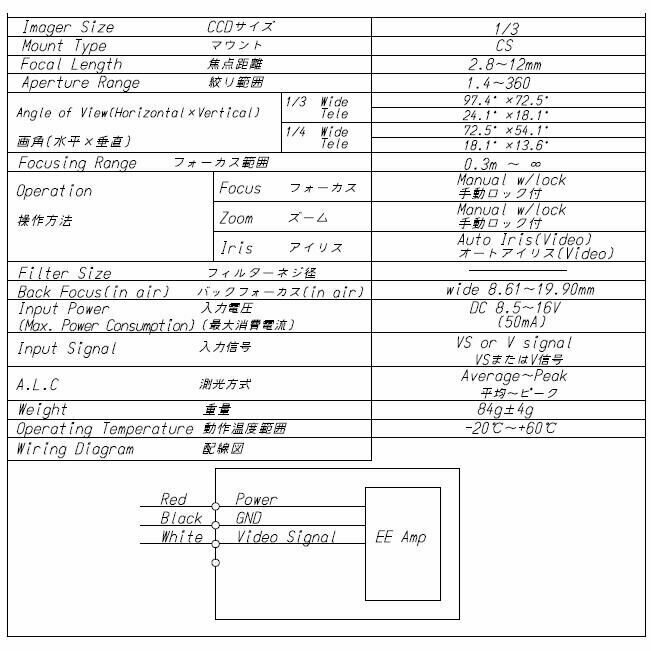 Imager Size CCDサイズ 1/3
Mount Type マウント CS
Focal Length 焦点距離 2.8~12mm
Aperture Range 絞り範囲 1.4~360
Angle of View(Horizontal×Vertical)
画角(水平×垂直)
1/3 Wide 97.4°×72.5°
Tele 24.1°×18.1°
1/4 Wide 72.5°×54.1°
Tele 18.1°×13.6°
Focusing Range フォーカス範囲 0.3m ~ ∞
Operation
操作方法
Focus フォーカス Manual w/lock
手動ロック付
Zoom ズーム Manual w/lock
手動ロック付
Iris アイリス Auto Iris(Video)
オートアイリス(Video)
Filter Size フィルターネジ径
Back Focus(in air) バックフォーカス(in air) wide 8.61~19.90mm
Input Power 入力電圧 DC 8.5~16V
(Max. Power Consumption) (最大消費電流) (50mA)
Input Signal 入力信号 VS or V signal
VSまたはV信号
A.L.C 測光方式 Average~Peak
平均~ピーク
Weight 重量 84g±4g
Operating Temperature 動作温度範囲 -20℃~+60℃
Wiring Diagram 配線図
Red Power
Black GND
White Video Signal
EE Amp